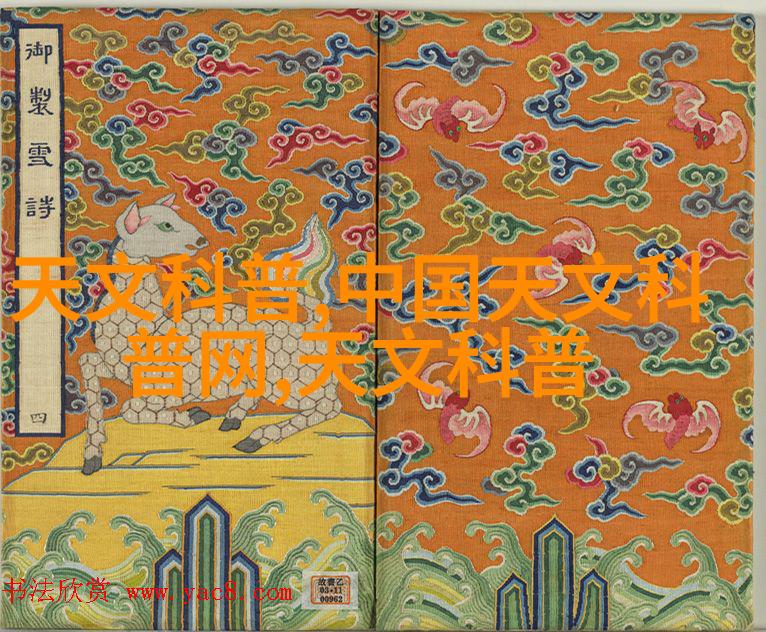 御製雪詩
四
天文科普,中国天文科
普网,天文科普
书法欣赏 www.yac8.com
故書乙
03•11
00962